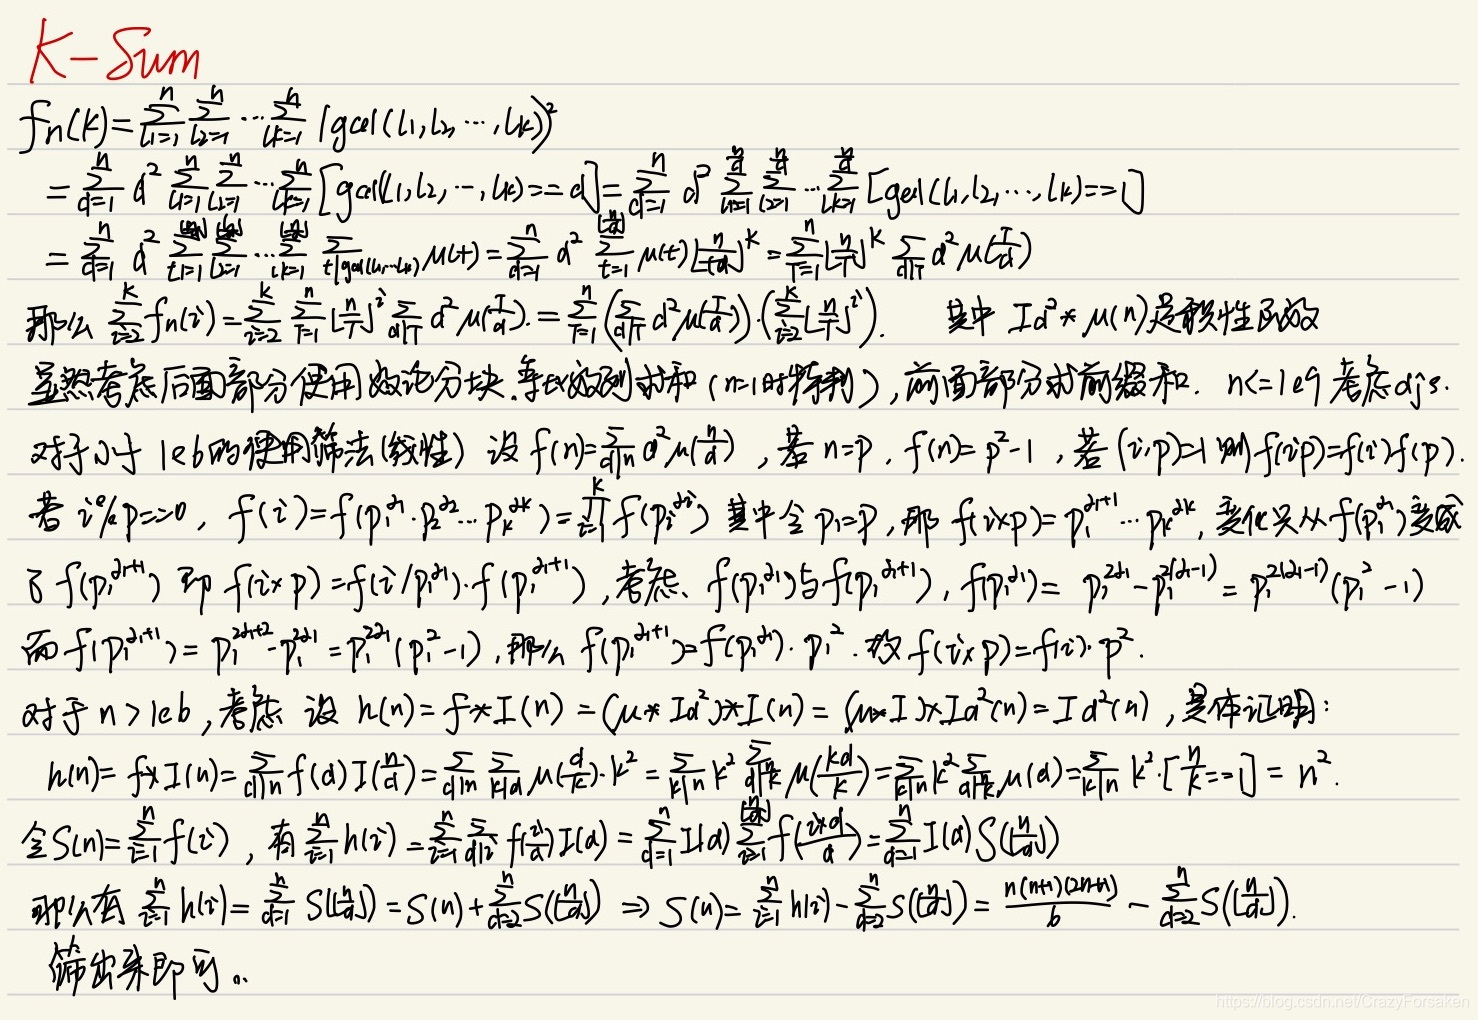 K-Sum
fn(k)=∑_{l1=1}^{n}∑_{l2=1}^{n}⋯∑_{lk=1}^{n}(gcd(l1,l2,⋯,lk))²
=∑_{d=1}^{n}d²∑_{l1=1}^{n}∑_{l2=1}^{n}⋯∑_{lk=1}^{n}[gcd(l1,l2,⋯,lk)==d]=∑_{d=1}^{n}d²∑_{l1=1}^{n/d}∑_{l2=1}^{n/d}⋯∑_{lk=1}^{n/d}[gcd(l1,l2,⋯,lk)==1]
=∑_{d=1}^{n}d²∑_{l1=1}^{⌊n/d⌋}∑_{l2=1}^{⌊n/d⌋}⋯∑_{lk=1}^{⌊n/d⌋}∑_{t|gcd(l1,⋯lk)}μ(t)=∑_{d=1}^{n}d²∑_{t=1}^{⌊n/d⌋}μ(t)⌊n/td⌋^k=∑_{T=1}^{n}⌊n/T⌋^k∑_{d|T}d²μ(T/d)
那么∑_{i=2}^{k}fn(i)=∑_{i=2}^{k}∑_{T=1}^{n}⌊n/T⌋^i∑_{d|T}d²μ(T/d).=∑_{T=1}^{n}(∑_{d|T}d²μ(T/d))·(∑_{i=2}^{k}⌊n/T⌋^i). 其中 Id²*μ(n)是积性函数
显然考虑后面部分使用数论分块.等比数列求和(n=1时特判),前面部分求前缀和. n<=1e9考虑djs.
对于小于1e6的使用筛法(线性) 设f(n)=∑_{d|n}d²μ(n/d),若n=p,f(n)=p²-1,若(i,p)=1则f(ip)=f(i)f(p).
若i%p==0,f(i)=f(p₁^{α₁}·p₂^{α₂}⋯p_k^{αk})=∏_{i=1}^{k}f(p_i^{αi})其中令p₁=p,那f(i×p)=p₁^{α₁+1}⋯p_k^{αk},变化只从f(p₁^{α₁})变成
了f(p₁^{α₁+1})即f(i×p)=f(i/p₁^{α₁})·f(p₁^{α₁+1}),考虑、f(p₁^{α₁})与f(p₁^{α₁+1}),f(p₁^{α₁})=p₁^{2α₁}-p₁^{2(α₁-1)}=p₁^{2(α₁-1)}(p₁²-1)
而f(p₁^{α₁+1})=p₁^{2α₁+2}-p₁^{2α₁}=p₁^{2α₁}(p₁²-1),那么f(p₁^{α₁+1})=f(p₁^{α₁})·p₁².故f(i×p)=f(i)·p².
对于n>1e6,考虑设h(n)=f*I(n)=(μ*Id²)*I(n)=(μ*I)*Id²(n)=Id²(n),具体证明:
h(n)=f*I(n)=∑_{d|n}f(d)I(n/d)=∑_{d|n}∑_{k|d}μ(d/k)·k²=∑_{k|n}k²∑_{d|n/k}μ(kd/k)=∑_{k|n}k²∑_{d|n/k}μ(d)=∑_{k|n}k²·[n/k==1]=n².
令S(n)=∑_{i=1}^{n}f(i),有∑_{i=1}^{n}h(i)=∑_{i=1}^{n}∑_{d|i}f(i/d)I(d)=∑_{d=1}^{n}I(d)∑_{i=1}^{⌊n/d⌋}f(i×d/d)=∑_{d=1}^{n}I(d)S(⌊n/d⌋)
那么有∑_{i=1}^{n}h(i)=∑_{d=1}^{n}S(⌊n/d⌋)=S(n)+∑_{d=2}^{n}S(⌊n/d⌋)⇒S(n)=∑_{i=1}^{n}h(i)-∑_{d=2}^{n}S(⌊n/d⌋)=n(n+1)(2n+1)/6-∑_{d=2}^{n}S(⌊n/d⌋).
筛出来即可。
https://blog.csdn.net/CrazyForsaken